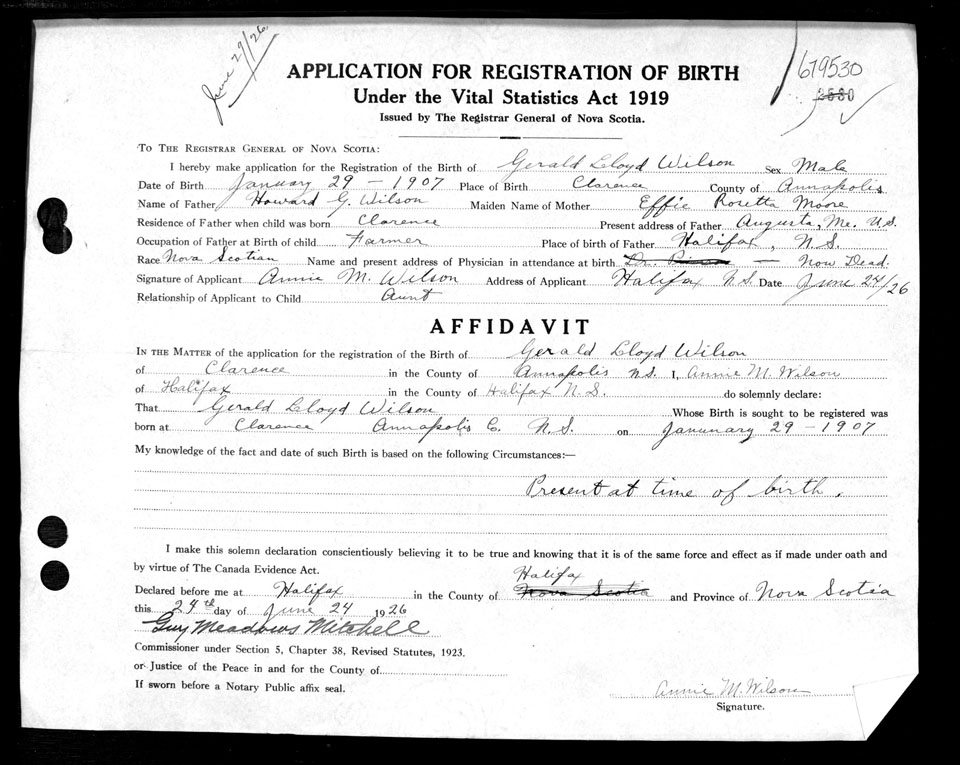 June 29/26.
679530
2530
APPLICATION FOR REGISTRATION OF BIRTH
Under the Vital Statistics Act 1919
Issued by The Registrar General of Nova Scotia.
TO THE REGISTRAR GENERAL OF NOVA SCOTIA:
I hereby make application for the Registration of the Birth of Gerald Lloyd Wilson Sex Male
Date of Birth January 29 - 1907 Place of Birth Clarence County of Annapolis
Name of Father Howard G. Wilson Maiden Name of Mother Effie Rosetta Moore
Residence of Father when child was born Clarence Present address of Father Augusta, Me. U.S.
Occupation of Father at Birth of child Farmer Place of birth of Father Halifax, N.S.
Race Nova Scotian Name and present address of Physician in attendance at birth Dr. — Now Dead.
Signature of Applicant Annie M. Wilson Address of Applicant Halifax N.S. Date June 24/26
Relationship of Applicant to Child Aunt
AFFIDAVIT
IN THE MATTER of the application for the registration of the Birth of Gerald Lloyd Wilson
of Clarence in the County of Annapolis N.S. I, Annie M. Wilson
of Halifax in the County of Halifax N.S. do solemnly declare:
That Gerald Lloyd Wilson Whose Birth is sought to be registered was
born at Clarence Annapolis C. N.S. on Janunary 29 - 1907
My knowledge of the fact and date of such Birth is based on the following Circumstances:—
Present at time of birth.
I make this solemn declaration conscientiously believing it to be true and knowing that it is of the same force and effect as if made under oath and
by virtue of The Canada Evidence Act.
Halifax
Declared before me at Halifax in the County of Nova Scotia and Province of Nova Scotia
this 24th day of June 24 1926
Guy Meadows Mitchell
Commissioner under Section 5, Chapter 38, Revised Statutes, 1923.
or Justice of the Peace in and for the County of
If sworn before a Notary Public affix seal.
Annie M. Wilson
Signature.